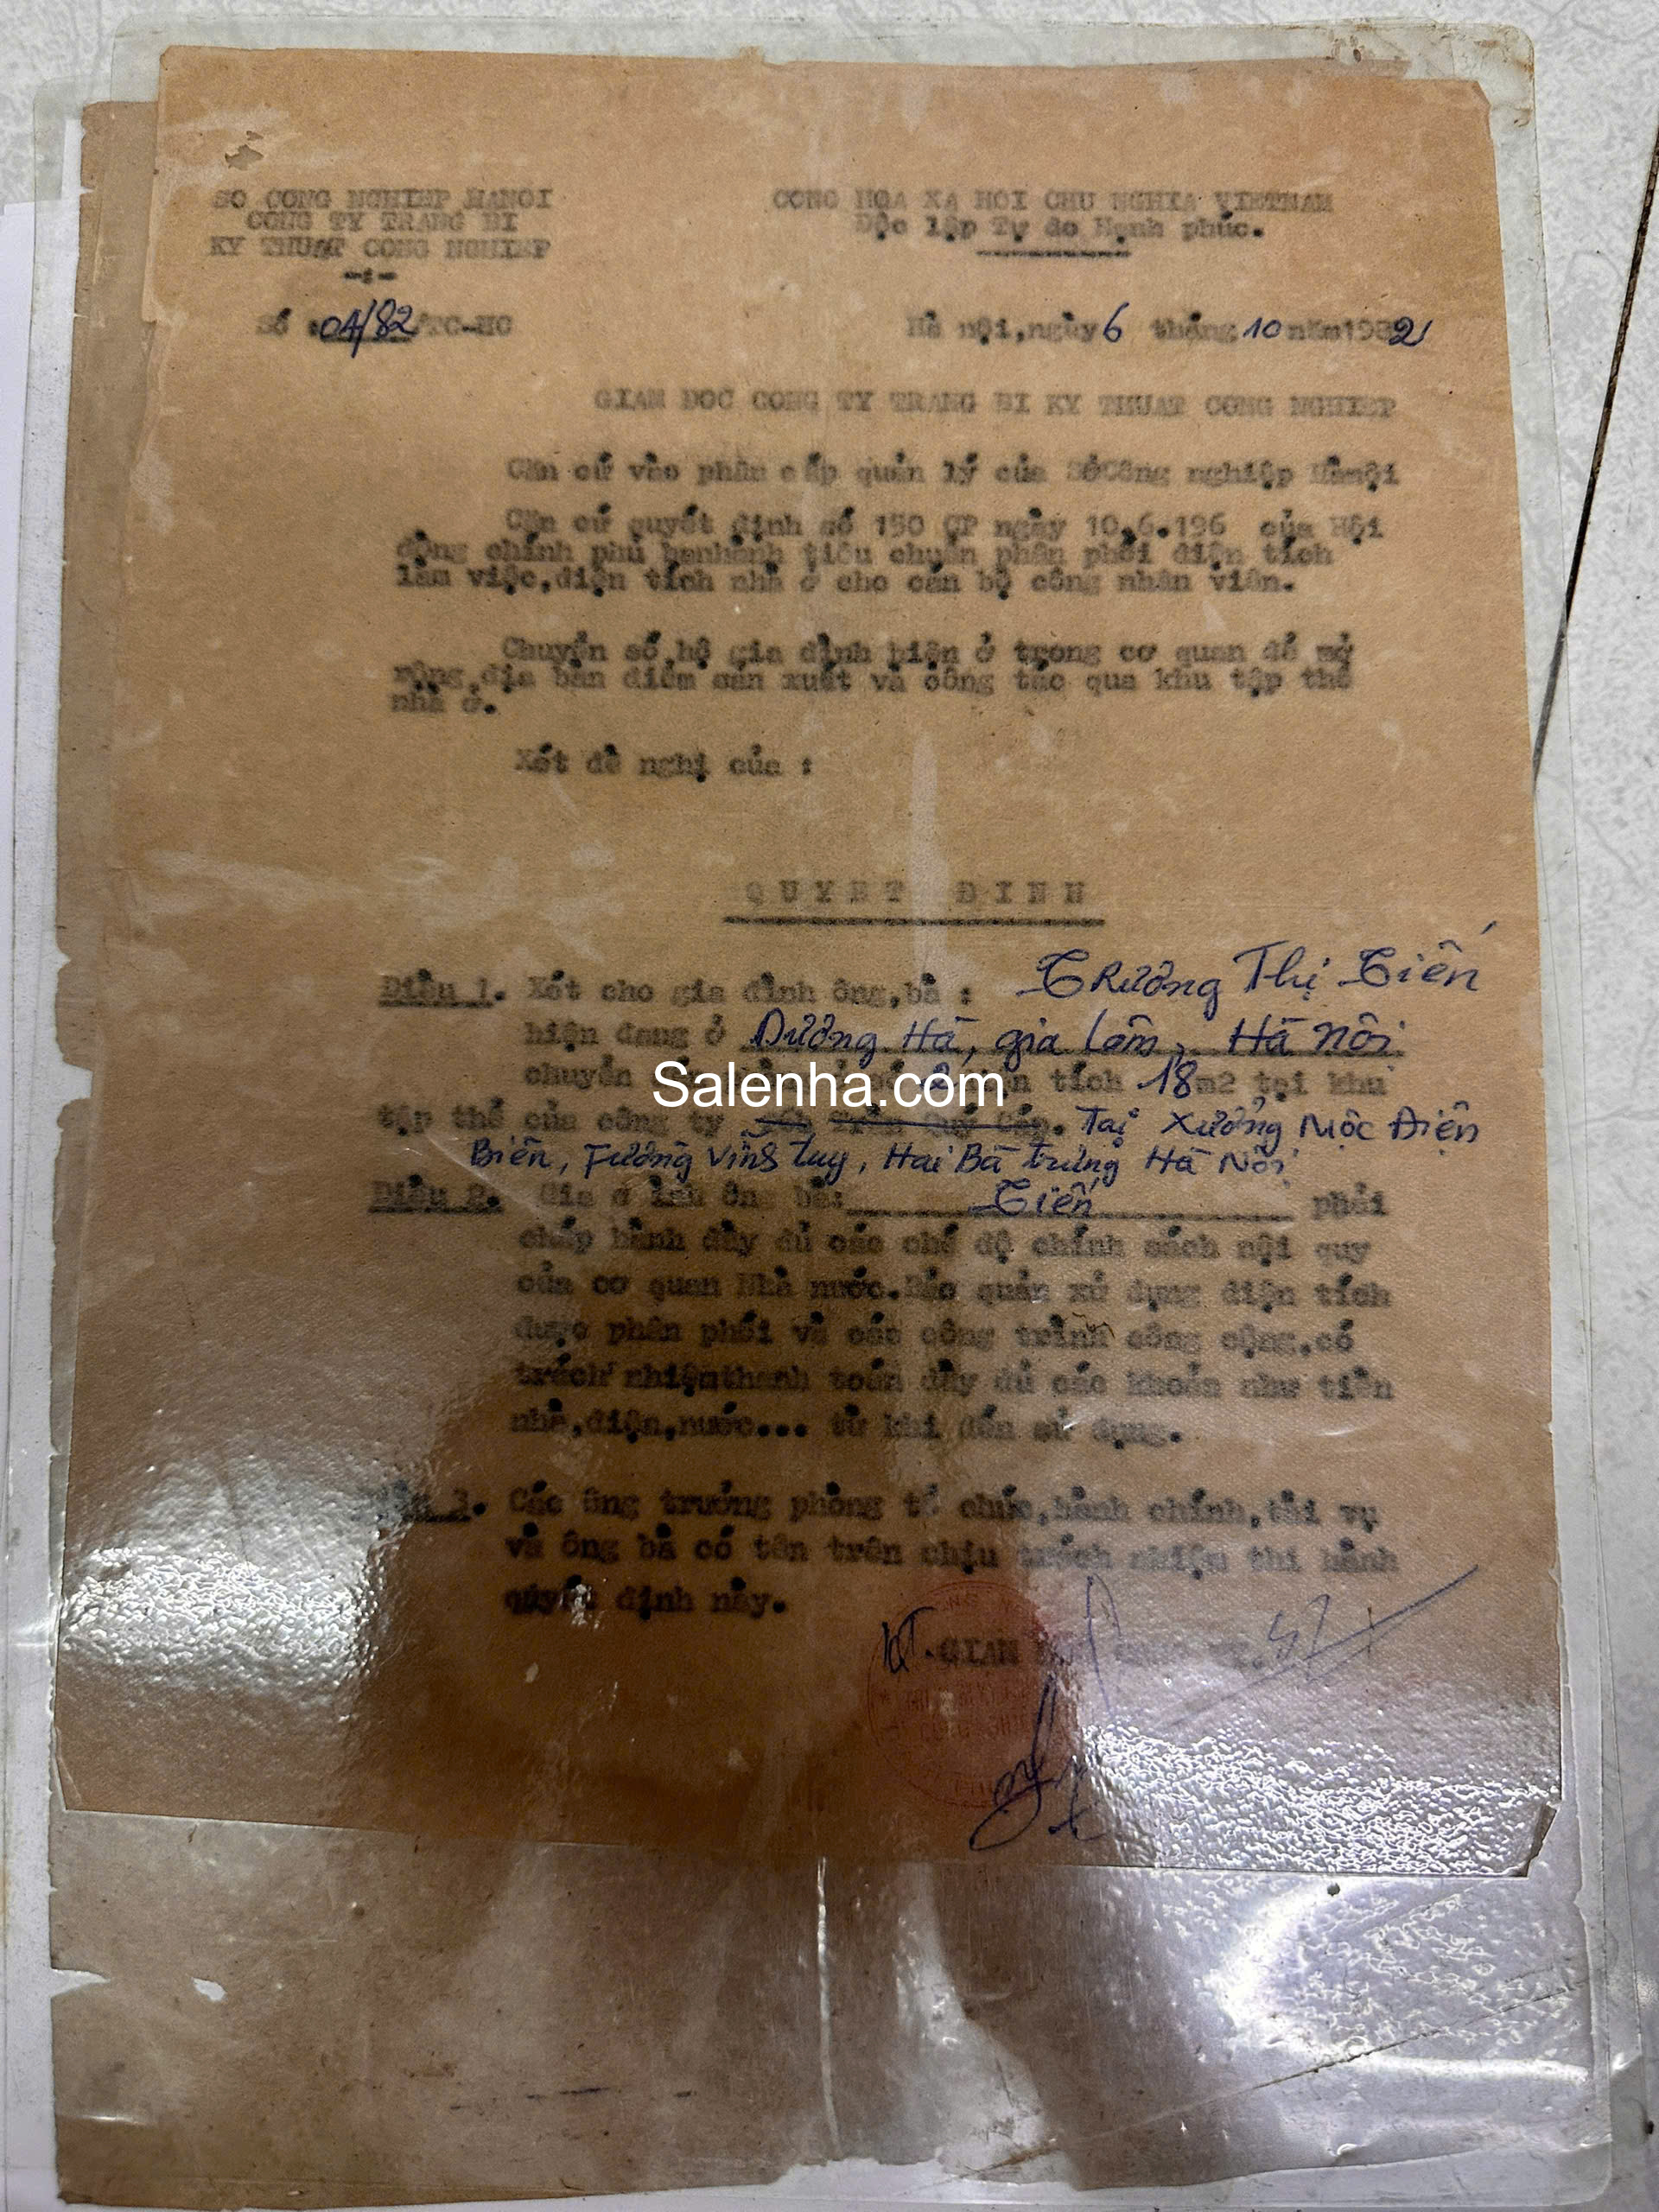 SO CONG NGHIEP HANOI
CONG TY TRANG BI
KY THUAT CONG NGHIEP
Số :04/82/TC-HC
CONG HOA XA HOI CHU NGHIA VIETNAM
Độc lập Tự do Hạnh phúc.
Hà nội,ngày 6 tháng 10 năm1982
GIAM DOC CONG TY TRANG BI KY THUAT CONG NGHIEP
Căn cứ vào phân cấp quản lý của SởCông nghiệp Hànội
Căn cứ quyết định số 150 CP ngày 10.6.196 của Hội
đồng chính phủ banhành tiêu chuẩn phân phối diện tích
làm việc,diện tích nhà ở cho cán bộ công nhân viên.
Chuyển số hộ gia đình hiện ở trong cơ quan để mở
rộng địa bàn điểm sản xuất và công tác qua khu tập thể
nhà ở.
Xét đề nghị của :
QUYET ĐINH
Điều 1. Xét cho gia đình ông,bà : Trương Thị Tiến
hiện đang ở Dương Hà, gia Lâm, Hà Nội
chuyển 2 diện tích 18m2 tại khu
tập thể của công ty Tại Xưởng Mộc Điện
Biên, Fường Vĩnh Tuy, Hai Bà Trưng Hà Nội
Điều 2. Gia ông bà: Tiến phải
chấp hành đầy đủ các chế độ chính sách nội quy
của cơ quan Nhà nước.Bảo quản xử dụng diện tích
được phân phối và các công trình công cộng,có
trách nhiệmthanh toán đầy đủ các khoản như tiền
nhà,điện,nước... từ khi đến sử dụng.
Điều 3. Các ông trưởng phòng tổ chức,hành chính,tài vụ
và ông bà có tên trên chịu trách nhiệm thi hành
quyết định này.
KT.GIAM
Salenha.com